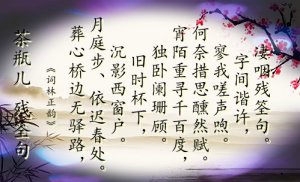 茶瓶儿 残筌句
《词林正韵》
葬心桥边无驿路，
月庭步、依迟春处。
沉影西窗户。
旧时杯下，
独卧阑珊顾。
宵陌重寻千百度，
何奈措思醺然赋。
寥我嗟声喣。
字间谐许，
凄咽残筌句。